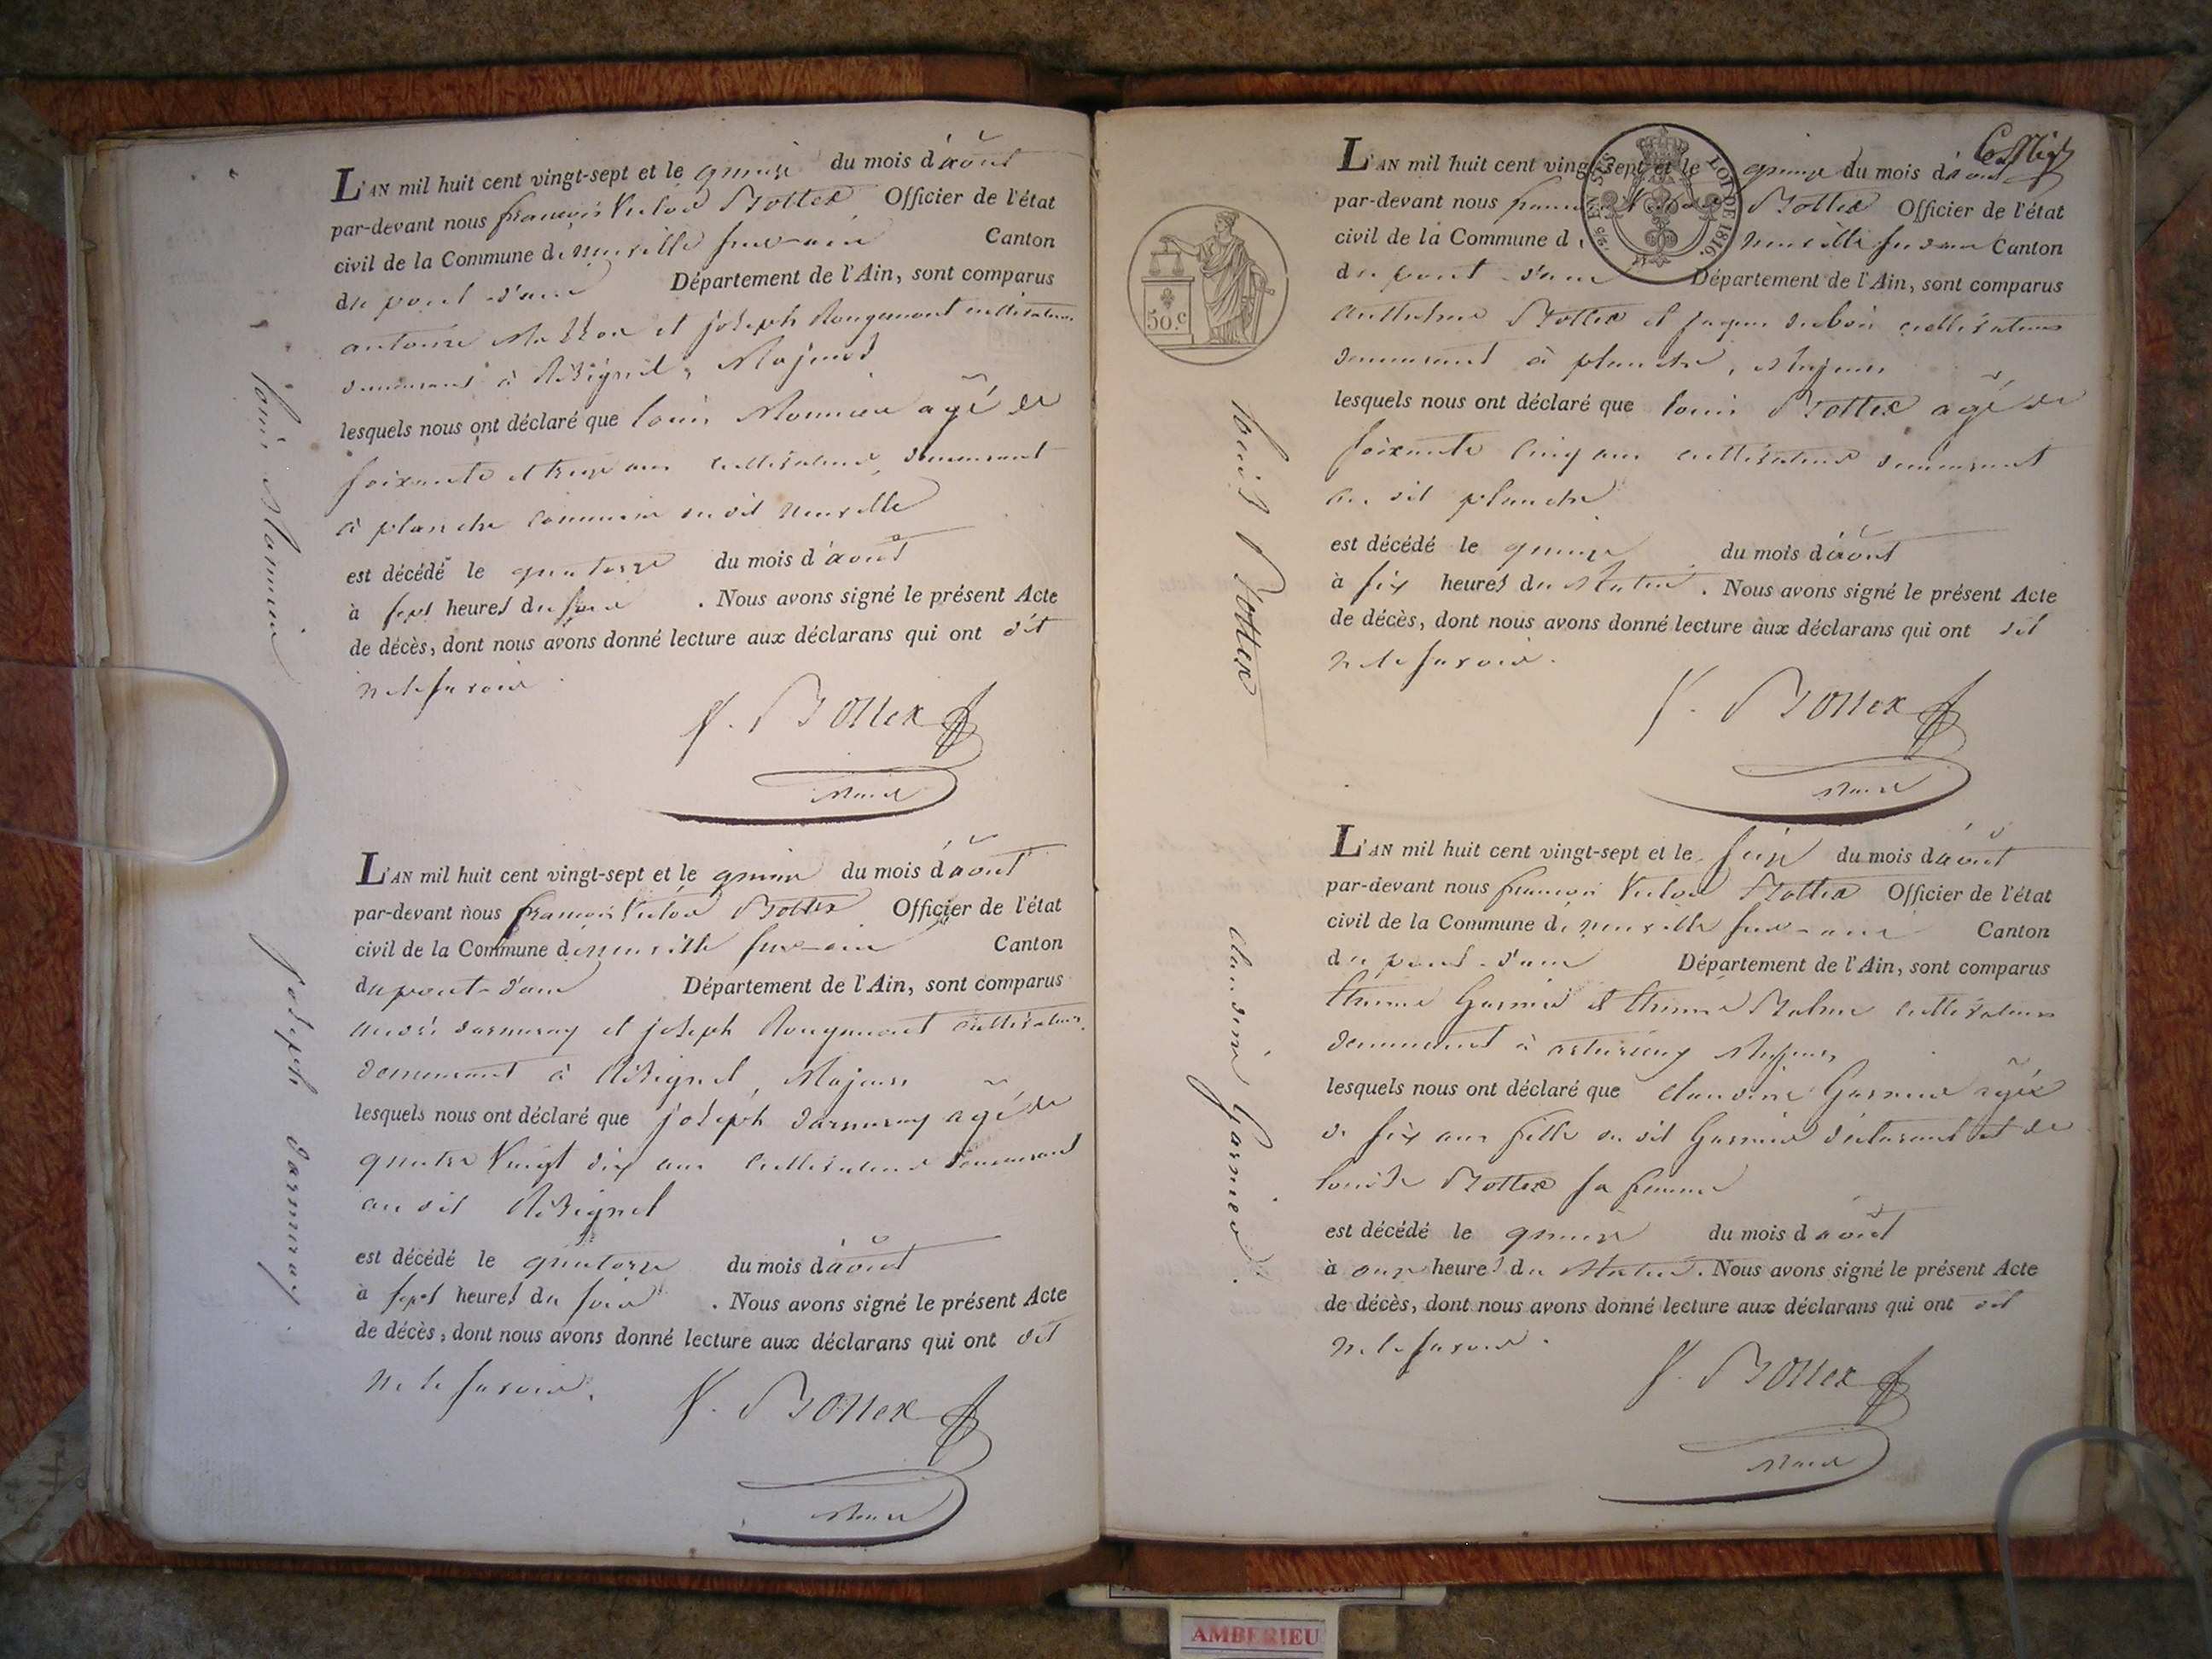 L'AN mil huit cent vingt-sept et le quinze du mois d'août
par-devant nous françois Victor Bottex Officier de l'état
civil de la Commune de neuville sur-ain Canton
du pont-d'ain Département de l'Ain, sont comparus
antoine et joseph Rougemont cultivateurs
demeurant à Résignel, Majeurs
lesquels nous ont déclaré que louis Monnier agé de
soixante et treize ans cultivateur, demeurant
à planche commune du dit neuville
est décédé le quatorze du mois d'août
à sept heures du soir . Nous avons signé le présent Acte
de décès, dont nous avons donné lecture aux déclarans qui ont dit
ne le savoir.
V. Bottex
Maire
louis Monnier
L'AN mil huit cent vingt-sept et le quinze du mois d'août
par-devant nous françois Victor Bottex Officier de l'état
civil de la Commune de neuville sur-ain Canton
du pont-d'ain Département de l'Ain, sont comparus
andré darmeray et joseph Rougemont cultivateurs
demeurant à Résignel, Majeurs
lesquels nous ont déclaré que joseph darmeray agé de
quatre Vingt dix ans cultivateur demeurant
au dit Résignel
est décédé le quatorze du mois d'août
à sept heures du soir . Nous avons signé le présent Acte
de décès, dont nous avons donné lecture aux déclarans qui ont dit
ne le savoir.
V. Bottex
Maire
joseph darmeray
L'AN mil huit cent vingt-sept et le quinze du mois d'août
par-devant nous françois Victor Bottex Officier de l'état
civil de la Commune de neuville sur-ain Canton
du pont-d'ain Département de l'Ain, sont comparus
anthelme Bottex et jaques dubois cultivateurs
demeurant à planche, Majeurs
lesquels nous ont déclaré que louis Bottex agé de
soixante cinq ans cultivateur demeurant
au dit planche
est décédé le quinze du mois d'août
à six heures du Matin . Nous avons signé le présent Acte
de décès, dont nous avons donné lecture aux déclarans qui ont dit
ne le savoir.
V. Bottex
Maire
louis Bottex
50.c
LOI DE 1816.
EN SUS
L'AN mil huit cent vingt-sept et le seize du mois d'août
par-devant nous françois Victor Bottex Officier de l'état
civil de la Commune de neuville sur-ain Canton
du pont-d'ain Département de l'Ain, sont comparus
Garnier et cultivateurs
demeurant à Majeurs
lesquels nous ont déclaré que claudine Garnier agée
de six ans fille du dit Garnier déclarant et de
louise Bottex sa femme
est décédé le quinze du mois d'août
à onze heures du Matin. Nous avons signé le présent Acte
de décès, dont nous avons donné lecture aux déclarans qui ont dit
ne le savoir.
V. Bottex
Maire
claudine Garnier.
AMBERIEU